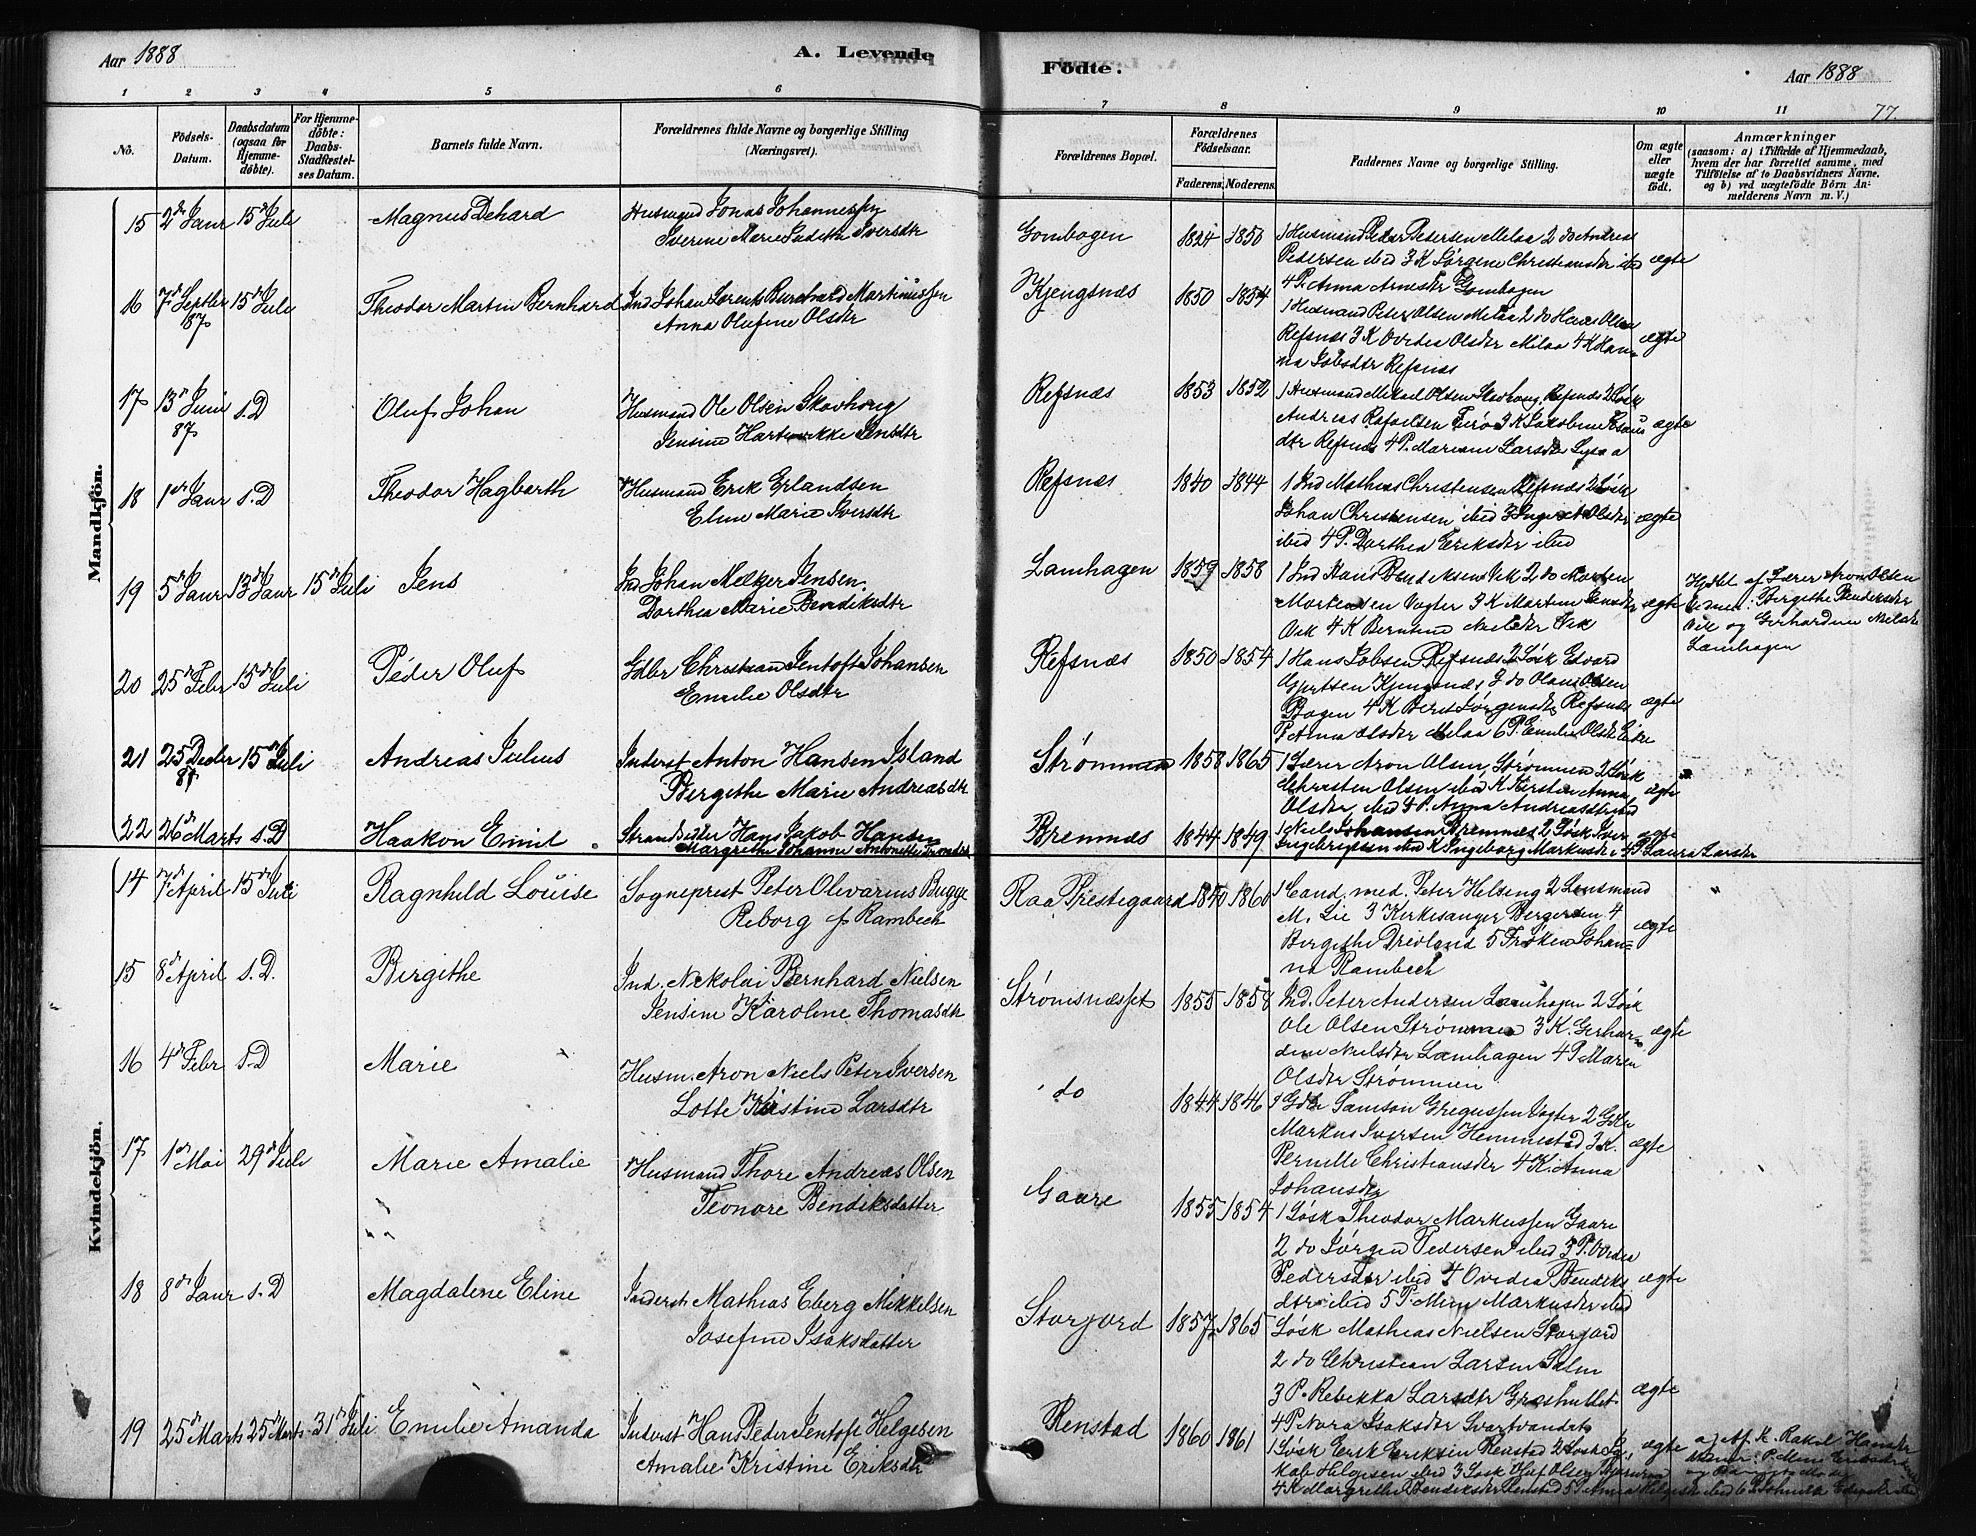 Aar 1888
A. Levende
Födte.
Aar 1888
77
1 2 3 4 5 6 7 8 9 10 11
No.
Födsels-Datum.
Daabsdatum (ogsaa for Hjemmedöbte).
For Hjemmedöbte: Daabs-Stadfæstelses Datum.
Barnets fulde Navn.
Forældrenes fulde Navne og borgerlige Stilling (Næringsvei).
Forældrenes Bopæl.
Forældrenes Födselsaar.
Faderens. Moderens.
Faddernes Navne og borgerlige Stilling.
Om ægte eller uægte födt.
Anmærkninger
(saasom: a) i Tilfælde af Hjemmedaab, hvem der har forrettet samme, med Tilföielse af to Daabsvidners Navne. og b) ved uægtefödte Börn Anmelderens Navn m. V.)
Mandkjön.
15 2de Janr 15de Juli Magnus Dehard Husmand Jonas Johannessen
Iverine Marie Judith Iversdtr
Gombogen 1824 1850 1 Husmand Peder Pedersen Melaa 2 do Andreas
Pedersen ibid 3 K Jørgine Christiansdtr ibid ægte
4 P. Anna Arnesdtr Gombogen
16 7de Septbr 87 15de Juli Theodor Martin Bernhard Ind Johan Lorents Burchard Martinussen
Anna Olufine Olsdtr
Kjengsnæs 1850 1854 1 Husmand Peter Olsen Melaa 2 do Hans Olsen
Refsnæs 3 K Ovedia Olsdtr Melaa 4 K Han-
na Jobsdtr Refsnæs
ægte
17 13de Juni 87 s. D Oluf Johan Husmand Ole Olsen Skovhoug
Jensine Hartvikke Jensdtr
Refsnæs 1853 1852 1 Husmand Mikael Olsen Skovhoug, Refsnæs 2 Løsk
Andreas Rafaelsen 3 K Jakobine
dtr Refsnæs 4 P. Maren Larsdtr
ægte
18 1de Janr s. D Theodor Hagbarth Husmand Erik Erlandsen
Eline Marie Iversdtr
Refsnæs 1840 1844 1 Ind Mathias Christensen Refsnæs 2 Løsk
Johan Christensen ibid 3 Inger Olsdtr ægte
ibid 4 P. Dorthea Eriksdtr ibid
19 5de Janr 13de Janr 15de Juli Jens Ind Johan Melkjer Jensen
Dorthea Marie Bendiksdtr
Lamhagen 1859 1858 1 Ind Hans Bendiksen Vik 2 do Morten
Mortensen Vogter 3 K Martine Jensdtr ægte
Vik 4 K Bernhard Nielsdtr Vik
Hjdbt af Lærer Aron Olsen
Vidner: Bergithe Bendiksdtr
Vik og Gerhardine Nielsdtr
Lamhagen
20 25de Febr 15de Juli Peder Oluf Gdbr Christian Jentoft Johansen
Emilie Olsdtr
Refsnæs 1850 1854 1 Hans Jobsen Refsnæs 2 Løsk Edvard
Kjengsnæs 3 do Olai Olsen
Bogen 4 K Berit Jørgensdtr Refsnæs ægte
P Anna Olsdtr Melaa 6 P. Emilie Olsdtr
21 25 Decbr 87 15de Juli Andreas Julius Inderst Anton Hansen Island
Bergithe Marie Andreasdtr
Strømmen 1858 1865 1 Lærer Aron Olsen, Strømmen 2 Løsk
Christen Olsen ibid K Kirsten Anna ægte
Olsdtr ibid 4 P. Anna Andreasdtr ibid
22 26de Marts s. D Haakon Emil Strandsidder Hans Jakob Hansen
Margrethe Johanne Antonette
Bremnæs 1844 1849 1 Niels Johansen Bremnæs 2 Løsk Iver ægte
Ingebrigtsen ibid K Ingeborg Markusdtr 4 P. Laura Larsdtr
Kvindekjön.
14 7de April 15de Juli Ragnhild Louise Sogneprest Peter Olivarius Bugge
Reborg f. Rambech
Raa Prestegaard 1840 1860 1 Cand. med. Peter Helseng 2 Lensmand
M. Lie 3 Kirkesanger Bergersen 4
Bergithe Drevland 5 Frøken Johan-
na Rambech
ægte
15 8de April s. D. Birgithe Ind. Nekolai Bernhard Nielsen
Jensine Karoline Thomasdtr
Strømsnæsset 1855 1858 Ind. Peter Andersen Lamhagen 2 Løsk
Ole Olsen Strømmen 3 K. Gerhar-
dine Nielsdtr Lamhagen 4 P Maren
Olsdtr Strømmen
ægte
16 4de Febr s. D Marie Husm. Aron Niels Peter Iversen
Lotte Kristine Larsdtr
do 1844 1846 1 Gdbr Samson Gregussen Vogter 2 Gdbr
Markus Iversen Hemmestad 3 K. ægte
Pernille Christiansdtr 4 K. Anna
Johansdtr
17 1de Mai 29de Juli Marie Amalie Husmand Thore Andreas Olsen
Leonore Bendiksdatter
Gaare 1855 1854 1 Løsk Theodor Markussen Gaare
2 do Jørgen Pedersen ibid 3 P. Ovedia
Pedersdtr ibid 4 Ovedia Bendiks ægte
dtr ibid 5 P. Mina Markusdtr ibid
18 8de Janr s. D Magdalene Eline Inderst Mathias Eberg Mikkelsen
Josefine Isaksdatter
Storjord 1857 1865 Løsk Mathias Nielsen Storjord
2 do Christian Larsen Salm
3 P. Rebekka Larsdtr Græshultet ægte
4 P Nora Isaksdtr Svartvandet
19 25de Marts 25de Marts 31te Juli Emilie Amanda Inderst Hans Peder Jentoft Helgesen
Amalie Kristine Eriksdtr
Renstad 1860 1861 1 Løsk Erik Eriksen Renstad 2 Løsk Ja- ægte
kob Helgesen ibid 3 Løsk Oluf Olsen
4 K Margrethe Bendiksdtr Renstad 5 P. Anna Helgesdtr ibid 6
a) af K. Rakel Hansdtr